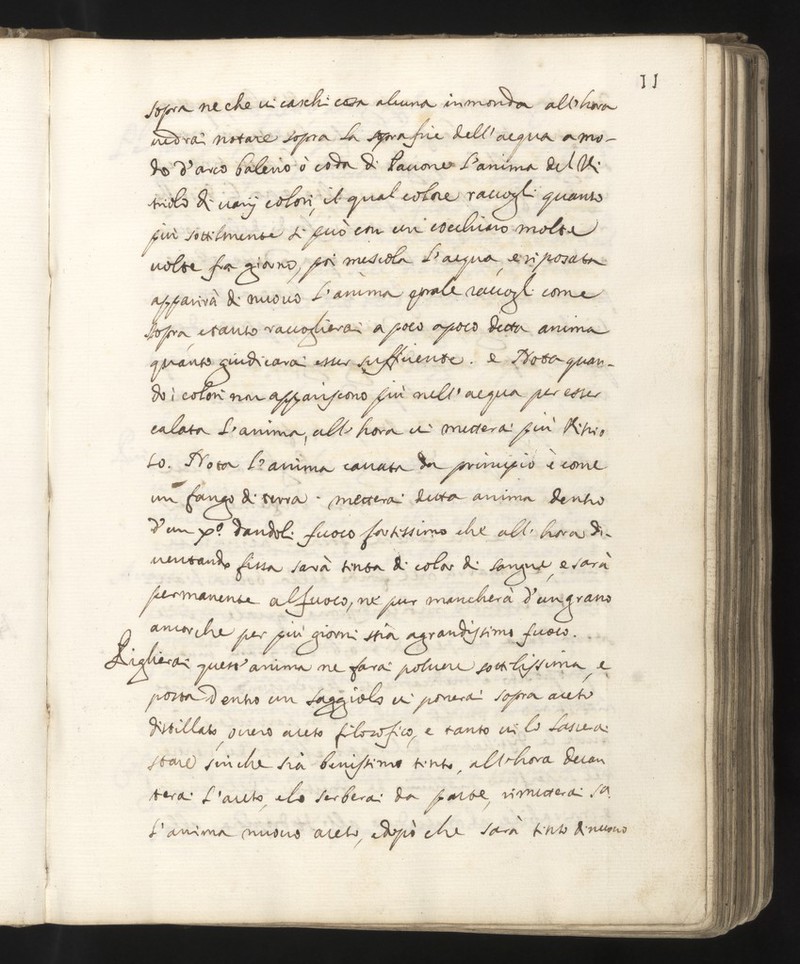 11
sopra ne che ui caschi cosa alcuna inmonda all'hora
uedrai notare sopra la soprafitie dell'acqua a mo-
do d'arco baleno ò coda di Pauone L'anima del Vi
triolo di uarij colori, il qual colore raccogli quanto
piu sottilmente si può con un cocchiaro molte
uolte fra giorno, poi mescola L'acqua, e riposata
apparirà di nuouo L'anima quale raccogli come
sopra e tanto raccoglierai a poco apoco detta anima
quanto giudicarai esser suffitiente. e Nota quan-
do i colori non appariscono più nell'acqua per esser
calata L'anima, all'hora ui metterai più Vitrio
lo. Nota L'anima cauata da principio è come
un fango di terra. metterai detta anima dentro
d'un xº. dandoli fuoco fortissimo che all'hora di-
uentando fissa sarà tinta di color di sangue, e sarà
permanente al fuoco, ne pur mancherà d'un grano
ancorche per più giorni stia a grandissimo fuoco.
Piglierai quest'anima ne farai poluere sottilissima, e
posta dentro un saggiolo ui ponerai sopra aceto
distillato, ouero aceto filosofico, e tanto ui lo lascerai
stare sinche sia benissimo tinto, all'hora decan
terai L'aceto, e lo serberai da parte, rimetterai sù
L'anima nuouo aceto, e dopò che sarà tinto di nuouo